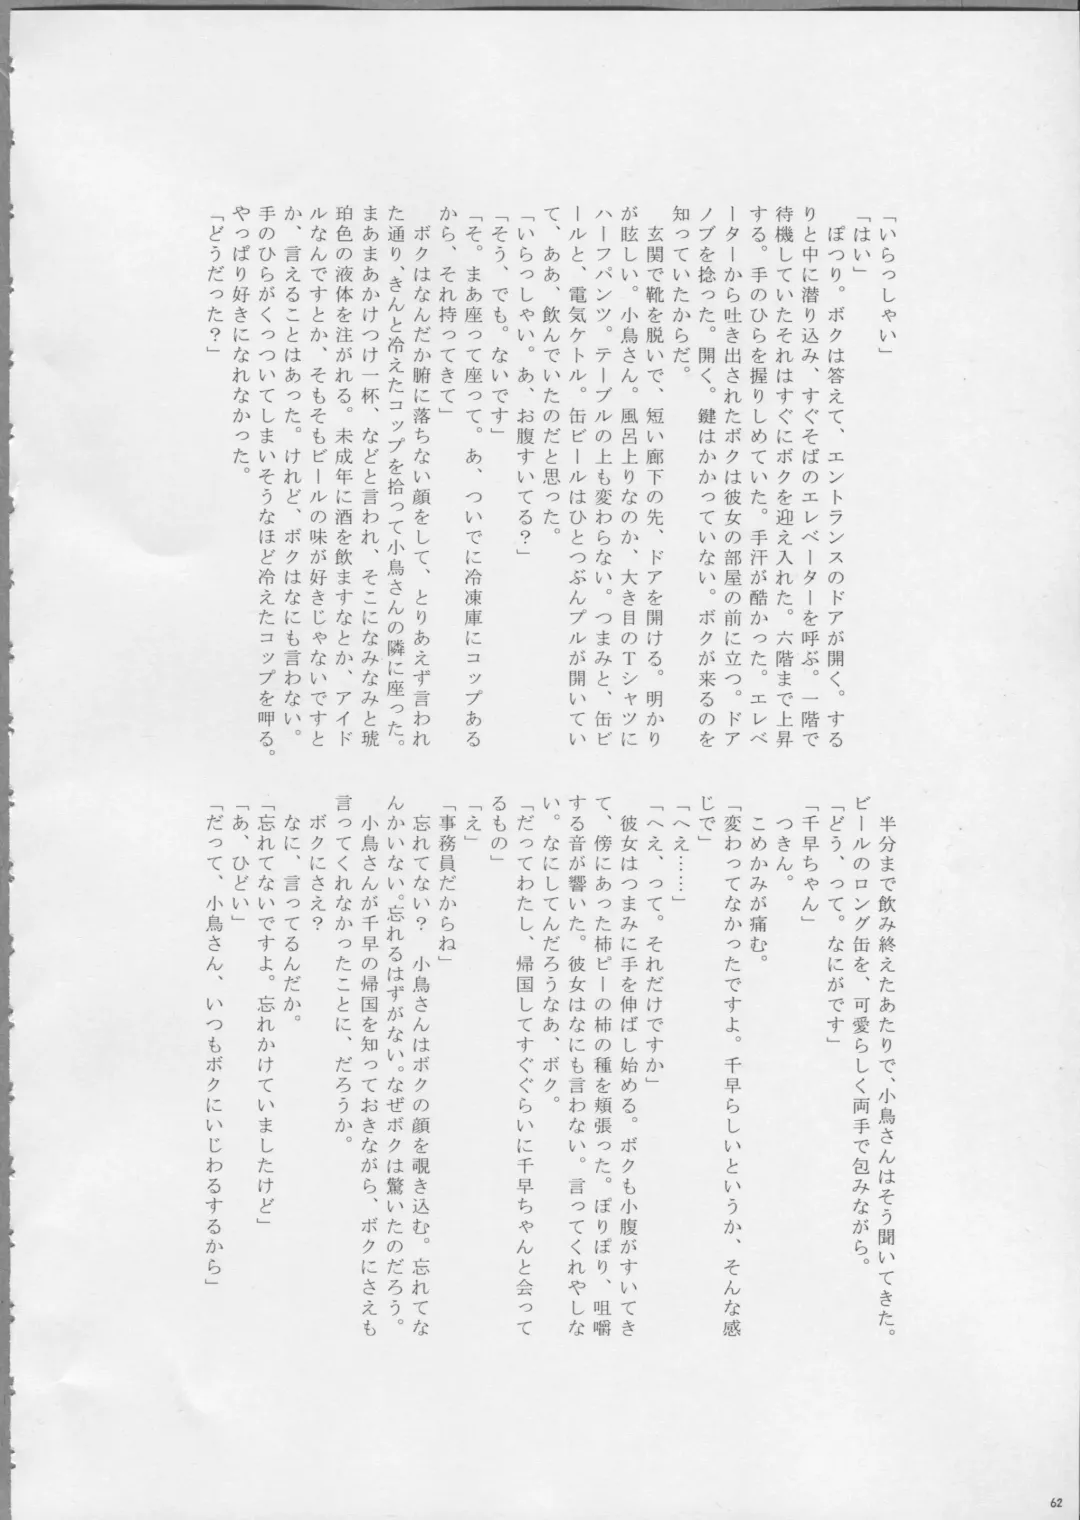 「いらっしゃい」
「はい」
　ぽつり。ボクは答えて、エントランスのドアが開く。する
りと中に潜り込み、すぐそばのエレベーターを呼ぶ。一階で
待機していたそれはすぐにボクを迎え入れた。六階まで上昇
する。手のひらを握りしめていた。手汗が酷かった。エレベ
ーターから吐き出されたボクは彼女の部屋の前に立つ。ドア
ノブを捻った。開く。鍵はかかっていない。ボクが来るのを
知っていたからだ。
　玄関で靴を脱いで、短い廊下の先、ドアを開ける。明かり
が眩しい。小鳥さん。風呂上りなのか、大き目のTシャツに
ハーフパンツ。テーブルの上も変わらない。つまみと、缶ビ
ールと、電気ケトル。缶ビールはひとつぶんプルが開いてい
て、ああ、飲んでいたのだと思った。
「いらっしゃい。あ、お腹すいてる？」
「そう、でも。ないです」
「そ。まあ座って座って。あ、ついでに冷凍庫にコップある
から、それ持ってきて」
　ボクはなんだか腑に落ちない顔をして、とりあえず言われ
た通り、きんと冷えたコップを拾って小鳥さんの隣に座った。
まあまあかけつけ一杯、などと言われ、そこになみなみと琥
珀色の液体を注がれる。未成年に酒を飲ますなとか、アイド
ルなんですとか、そもそもビールの味が好きじゃないですと
か、言えることはあった。けれど、ボクはなにも言わない。
手のひらがくっついてしまいそうなほど冷えたコップを呷る。
やっぱり好きになれなかった。
「どうだった？」
　半分まで飲み終えたあたりで、小鳥さんはそう聞いてきた。
ビールのロング缶を、可愛らしく両手で包みながら。
「どう、って。なにがです」
「千早ちゃん」
　つきん。
　こめかみが痛む。
「変わってなかったですよ。千早らしいというか、そんな感
じで」
「へえ……」
「へえ、って。それだけですか」
　彼女はつまみに手を伸ばし始める。ボクも小腹がすいてき
て、傍にあった柿ピーの柿の種を頬張った。ぽりぽり、咀嚼
する音が響いた。彼女はなにも言わない。言ってくれやしな
い。なにしてんだろうなあ、ボク。
「だってわたし、帰国してすぐぐらいに千早ちゃんと会って
るもの」
「え」
「事務員だからね」
　忘れてない？　小鳥さんはボクの顔を覗き込む。忘れてな
んかいない。忘れるはずがない。なぜボクは驚いたのだろう。
　小鳥さんが千早の帰国を知っておきながら、ボクにさえも
言ってくれなかったことに、だろうか。
　ボクにさえ？
　なに、言ってるんだか。
「忘れてないですよ。忘れかけていましたけど」
「あ、ひどい」
「だって、小鳥さん、いつもボクにいじわるするから」
62